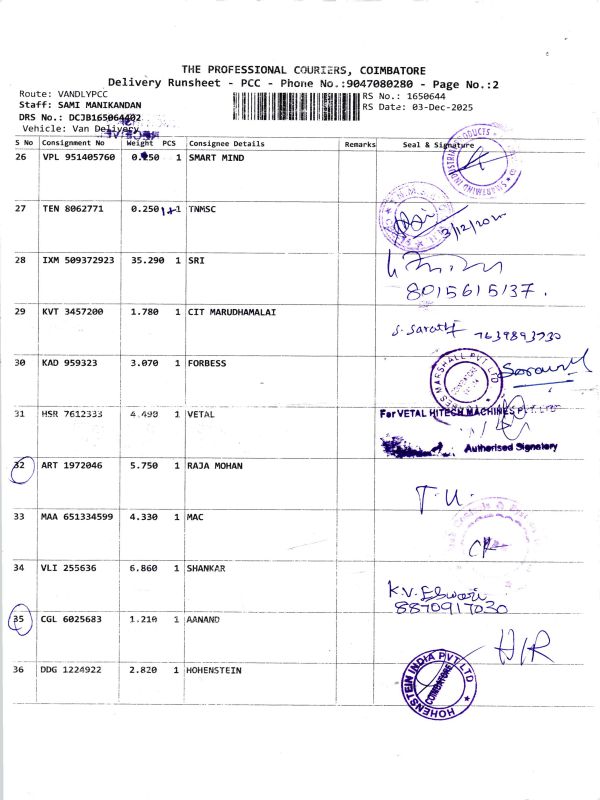 THE PROFESSIONAL COURIERS, COIMBATORE
Delivery Runsheet - PCC - Phone No.:9047080280 - Page No.:2
Route: VANDLYPCC
RS No.: 1650644
Staff: SAMI MANIKANDAN
RS Date: 03-Dec-2025
DRS No.: DCJB165064402
Vehicle: Van Delivery
S No Consignment No Weight PCS Consignee Details Remarks Seal & Signature
26 VPL 951405760 0.250 1 SMART MIND
27 TEN 8062771 0.250 1+1 TNMSC
3/12/2025
28 IXM 509372923 35.290 1 SRI
8015615137.
29 KVT 3457200 1.780 1 CIT MARUDHAMALAI
S. Sarathi 7639893730
30 KAD 959323 3.070 1 FORBESS
31 HSR 7612333 4.490 1 VETAL
For VETAL HITECH MACHINES PVT. LTD
Authorised Signatory
32 ART 1972046 5.750 1 RAJA MOHAN
T.U.
33 MAA 651334599 4.330 1 MAC
34 VLI 255636 6.860 1 SHANKAR
K.V. Eswari
8870917030
35 CGL 6025683 1.210 1 AANAND
H/R
36 DDG 1224922 2.820 1 HOHENSTEIN
HOHENSTEIN INDIA PVT LTD
COIMBATORE